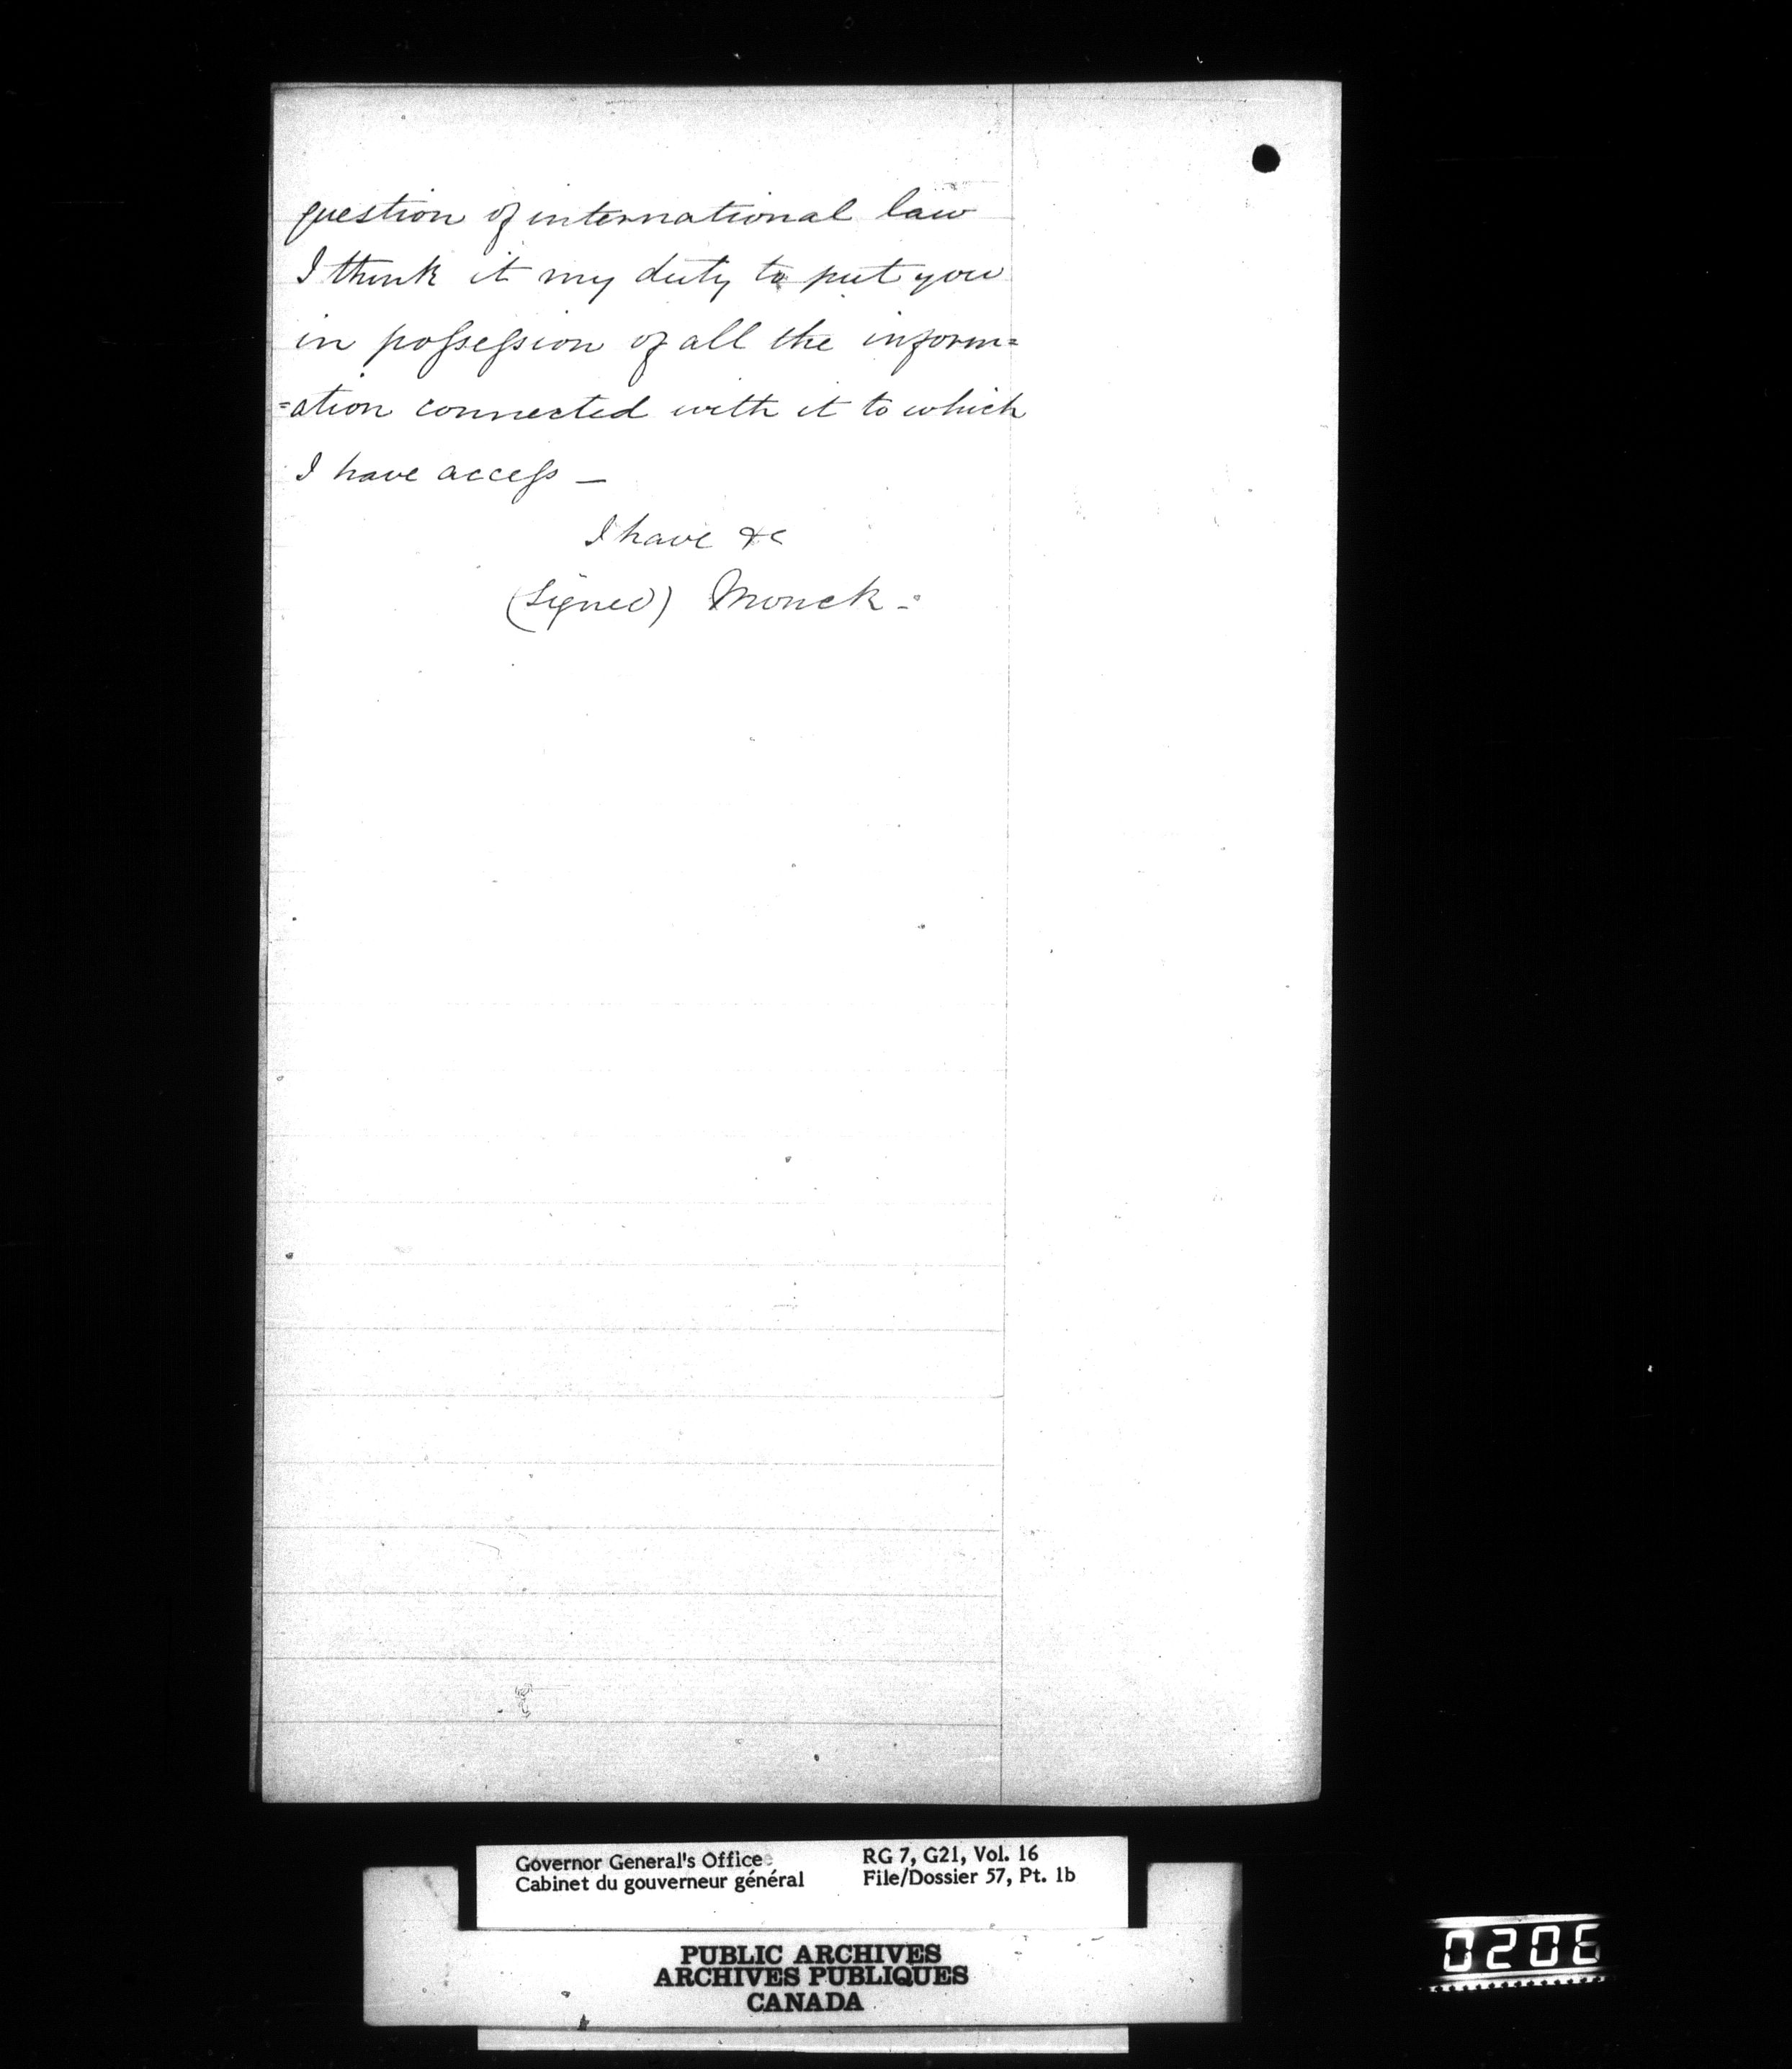 question of international law
I think it my duty to put you
in possession of all the inform=
=ation connected with it to which
I have access —
I have &c
(Signed) Monck -
Governor General's Office
Cabinet du gouverneur général
RG 7, G21, Vol. 16
File/Dossier 57, Pt. 1b
PUBLIC ARCHIVES
ARCHIVES PUBLIQUES
CANADA
0206